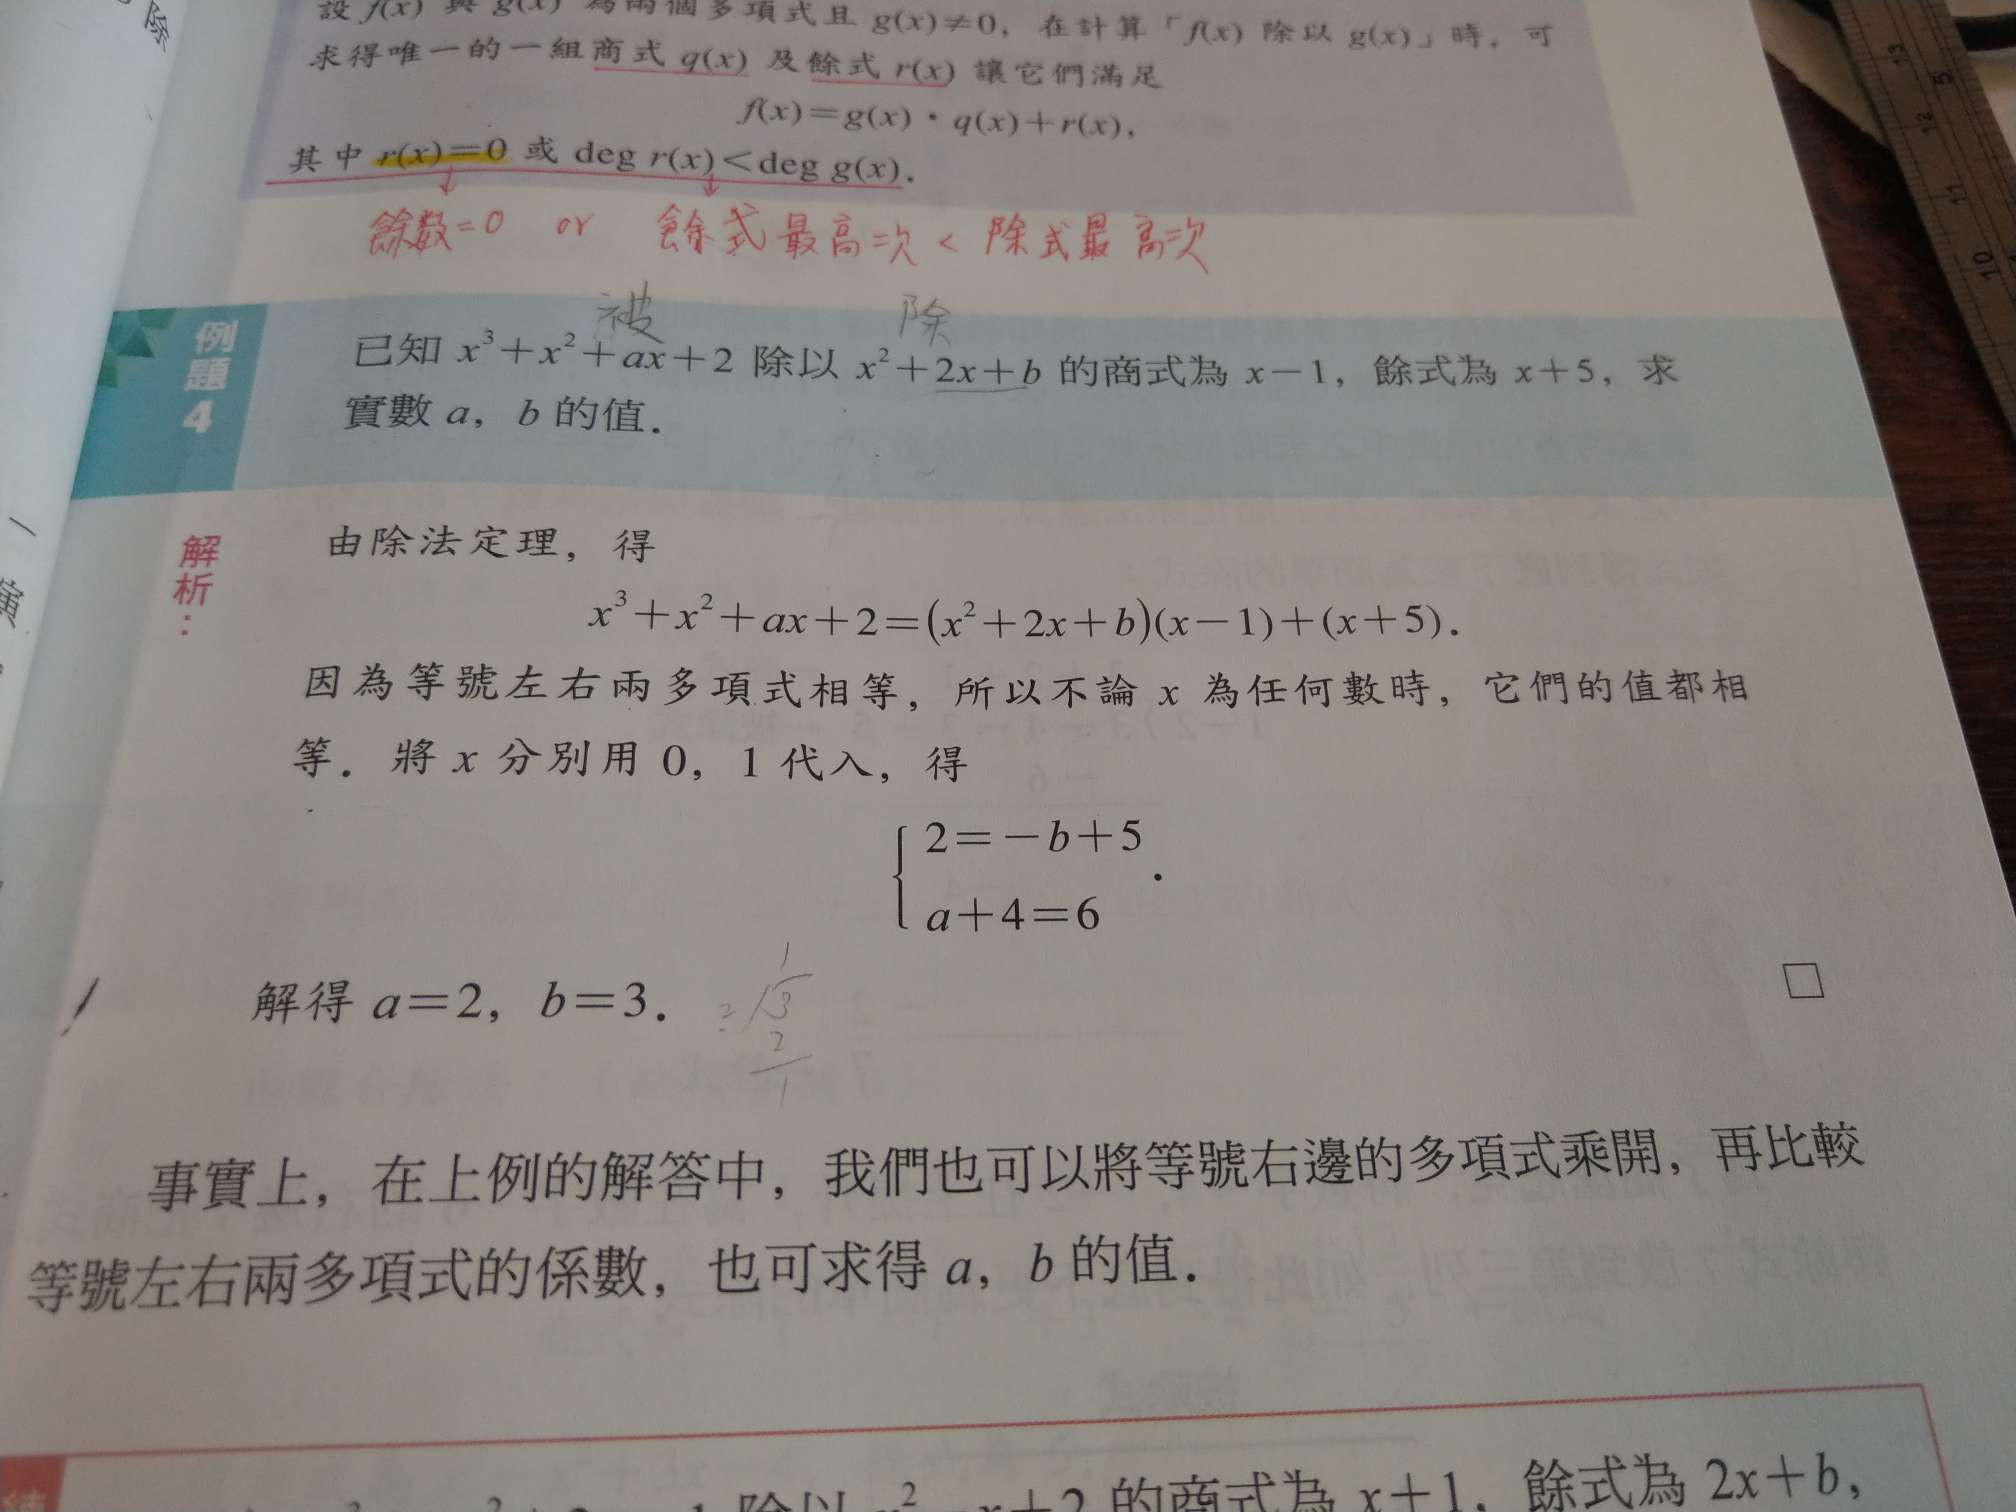 除
設 f(x) 與 g(x) 為兩個多項式且 g(x)≠0，在計算「f(x) 除以 g(x)」時，可
求得唯一的一組商式 q(x) 及餘式 r(x) 讓它們滿足
f(x)=g(x)·q(x)+r(x)，
其中 r(x)=0 或 deg r(x)<deg g(x)．
餘数=0 or 餘式最高次 < 除式最高次
被 除
例題4
已知 x³+x²+ax+2 除以 x²+2x+b 的商式為 x−1，餘式為 x+5，求
實數 a，b 的值．
解析：
由除法定理，得
x³+x²+ax+2=(x²+2x+b)(x−1)+(x+5)．
因為等號左右兩多項式相等，所以不論 x 為任何數時，它們的值都相
等．將 x 分別用 0，1 代入，得
2=−b+5
a+4=6
．
解得 a=2，b=3．
1
2 3
2
1
□
事實上，在上例的解答中，我們也可以將等號右邊的多項式乘開，再比較
等號左右兩多項式的係數，也可求得 a，b 的值．
除以 x²−x+2 的商式為 x+1，餘式為 2x+b，
13
5
12
11
10